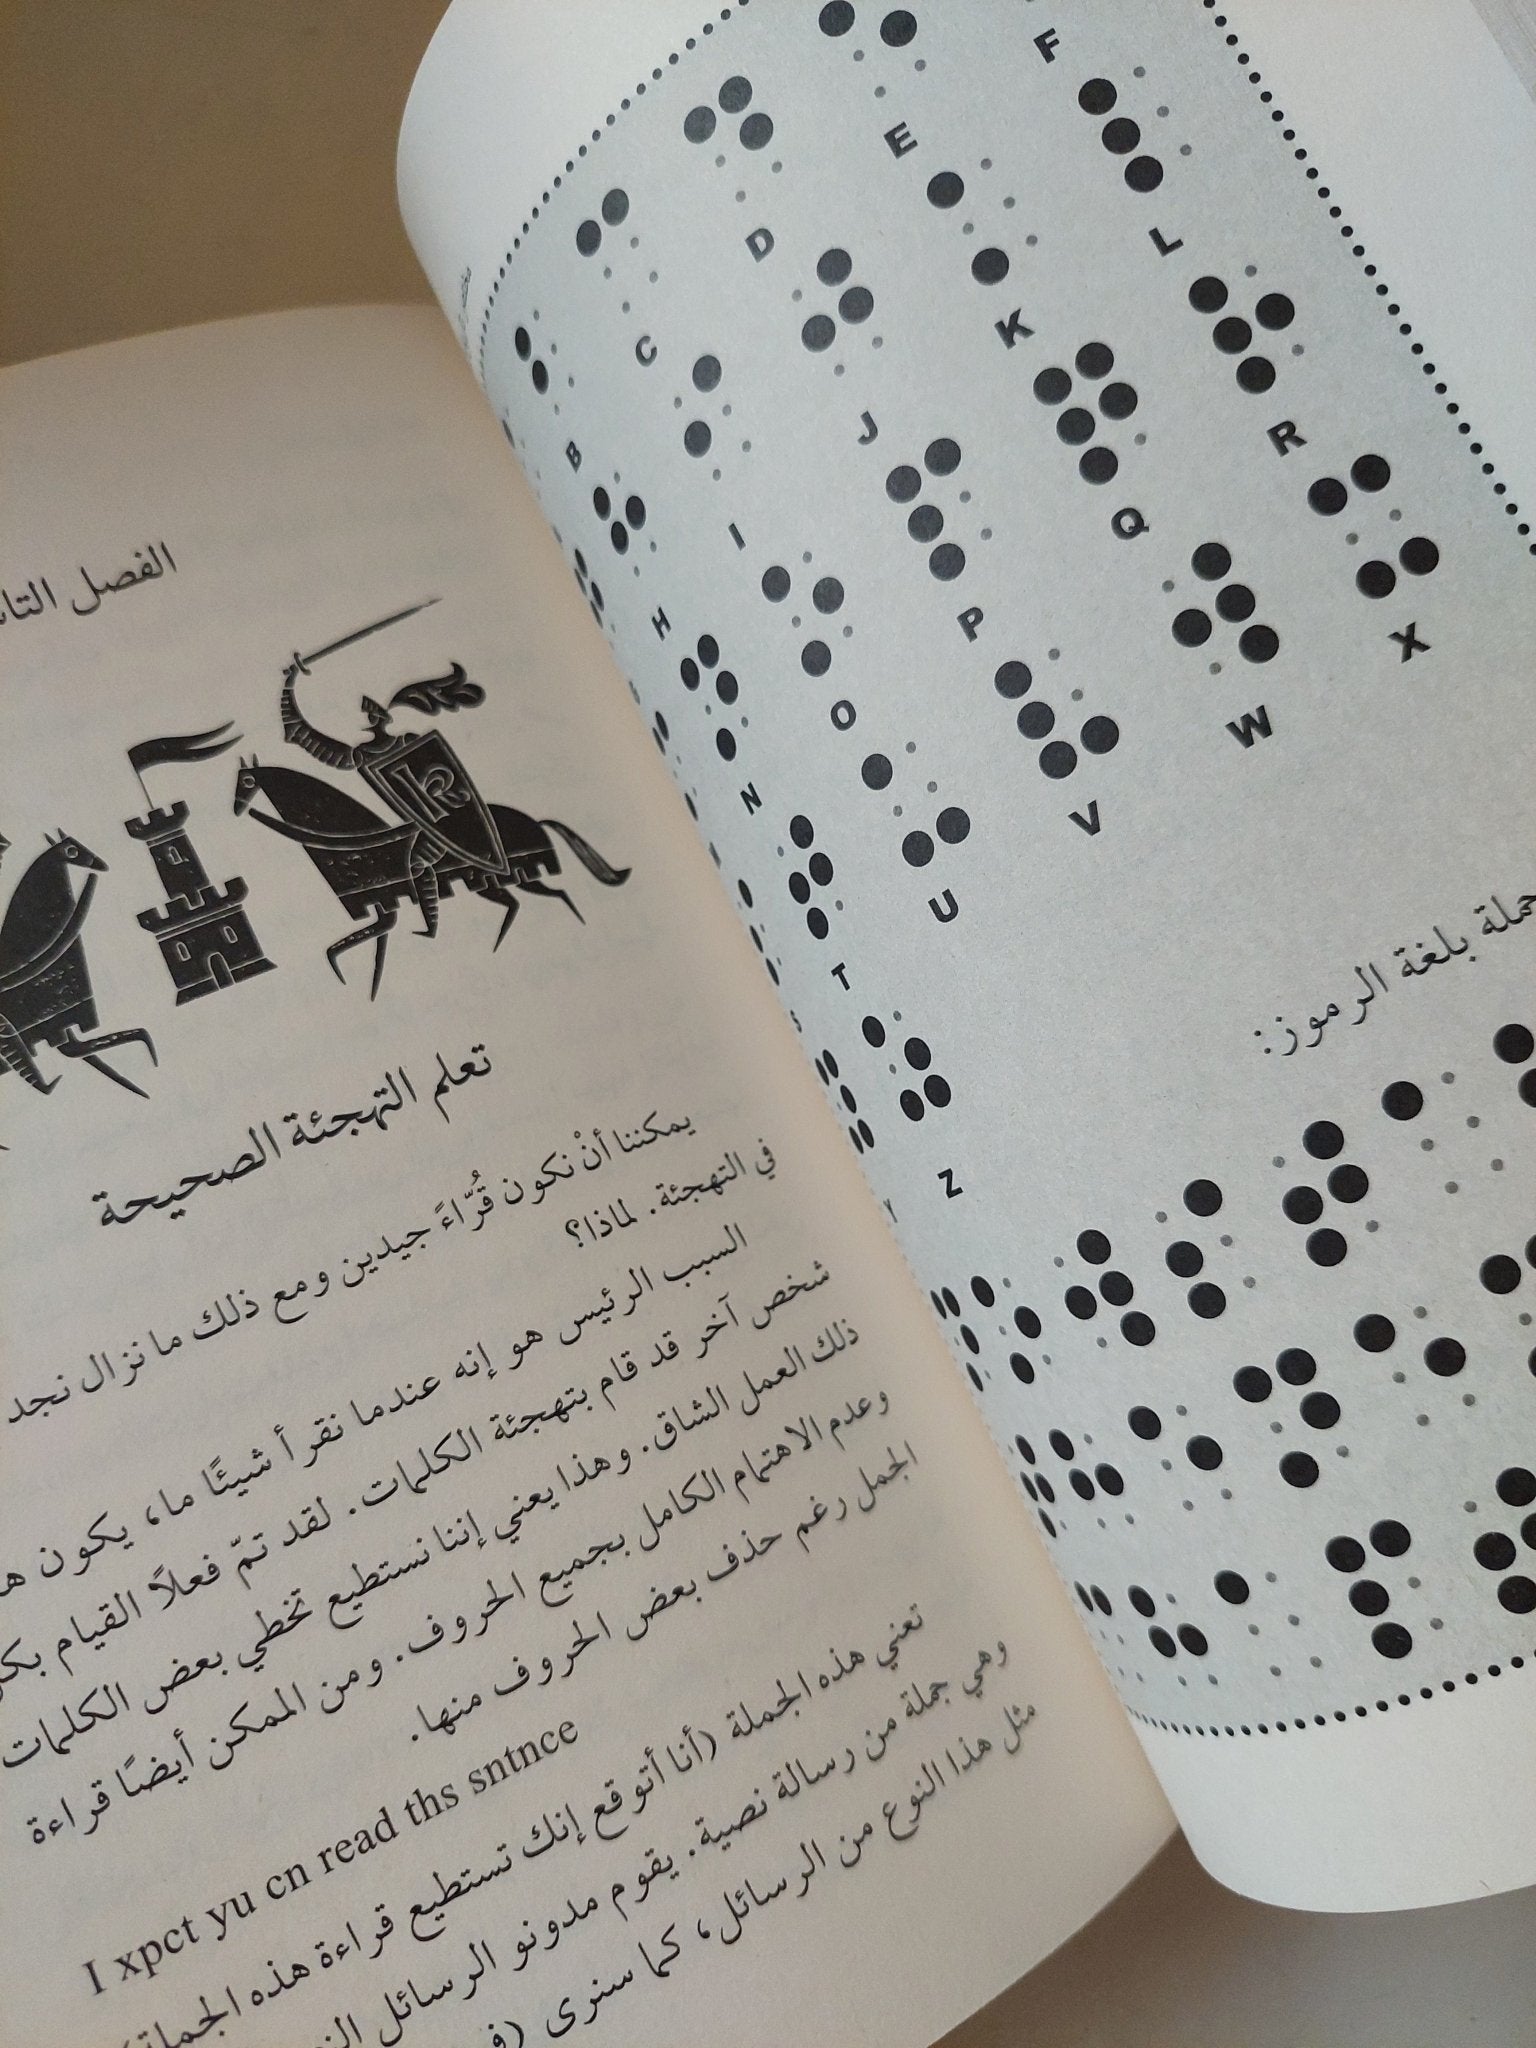 B
C
D
E
F
H
I
J
K
L
N
O
P
Q
R
T
U
V
W
X
Z
جملة بلغة الرموز:
الفصل
k
تعلم التهجئة الصحيحة
يمكننا أنْ نكون قُرّاءً جيدين ومع ذلك ما نزال نجد
في التهجئة. لماذا؟
السبب الرئيس هو إنه عندما نقرأ شيئًا ما، يكون
شخص آخر قد قام بتهجئة الكلمات. لقد تمّ فعلاً القيام
ذلك العمل الشاق. وهذا يعني إننا نستطيع تخطي بعض الكلمات
وعدم الاهتمام الكامل بجميع الحروف. ومن الممكن أيضًا قراءة
الجمل رغم حذف بعض الحروف منها.
I xpct yu cn read ths sntnce
تعني هذه الجملة (أنا أتوقع إنك تستطيع قراءة هذه الجملة)
وهي جملة من رسالة نصية. يقوم مدونو الرسائل
مثل هذا النوع من الرسائل، كما سنرى